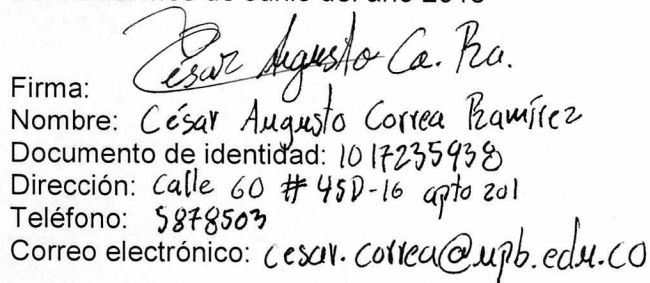 de Junio del año 2018
Firma: César Augusto Ca. Ra.
Nombre: César Augusto Correa Ramírez
Documento de identidad: 1017235938
Dirección: Calle 60 # 45D-16 apto 201
Teléfono: 5878503
Correo electrónico: cesar.correa@upb.edu.co